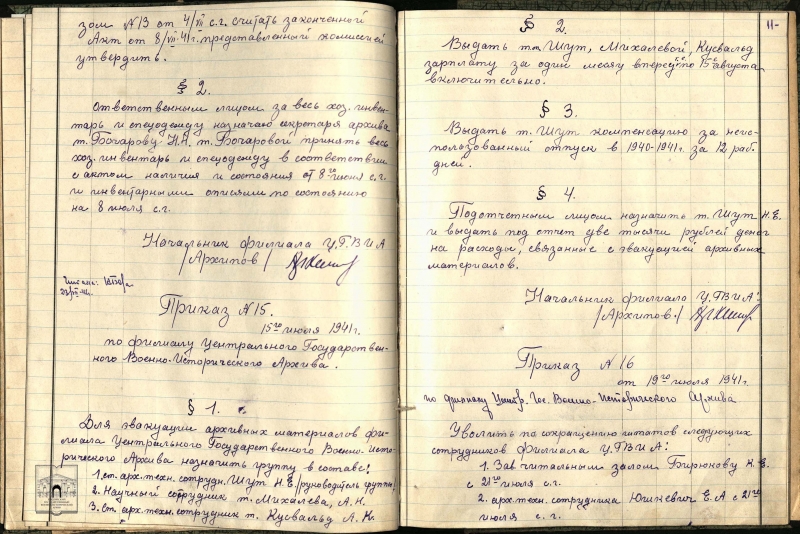 зом №13 от 4/VII с.г. считать законченный
Акт от 8/VII-41г. представленный комиссией
утвердить.
§ 2.
Ответственным лицом за весь хоз. инвен-
тарь и спецодежду назначаю секретаря архива
т. Бочарову Н.А. т. Бочаровой принять весь
хоз. инвентарь и спецодежду в соответствии
с актом наличия и состояния от 8го июля с.г.
и инвентарными описями по состоянию
на 8 июля с.г.
Начальник филиала ЦГВИА
/Архипов/
Читала:
23/VII-41г.
Приказ №15.
15го июля 1941г.
по филиалу Центрального Государствен-
ного Военно-Исторического Архива.
§ 1.
Для эвакуации архивных материалов фи-
лиала Центрального Государственного Военно-Исто-
рического Архива назначить группу в составе:
1. Ст. арх. техн. сотрудн. Шут Н.Е. /руководитель группы/
2. Научный сотрудник т. Михалева, А.Н.
3. Ст. арх. техн. сотрудник т. Кусвальд Л.К.
11-
§ 2.
Выдать тт. Шут, Михалевой, Кусвальд
зарплату за один месяц вперед по 15 августа
включительно.
§ 3.
Выдать т. Шут компенсацию за неис-
пользованный отпуск в 1940-1941г. за 12 раб.
дней.
§ 4.
Подотчетным лицом назначить т. Шут Н.Е.
и выдать под отчет две тысячи рублей денег
на расходы, связанные с эвакуацией архивных
материалов.
Начальник филиала ЦГВИА:
/Архипов./
Приказ №16
от 19го июля 1941г.
по филиалу Центр. Гос. Военно-Исторического Архива
Уволить по сокращению штатов следующих
сотрудников филиала ЦГВИА:
1. Зав. читальным залом Бирюкову К.Е.
с 21го июля с.г.
2. арх. техн. сотрудника Юшкевич Е.А с 21го
июля с.г.